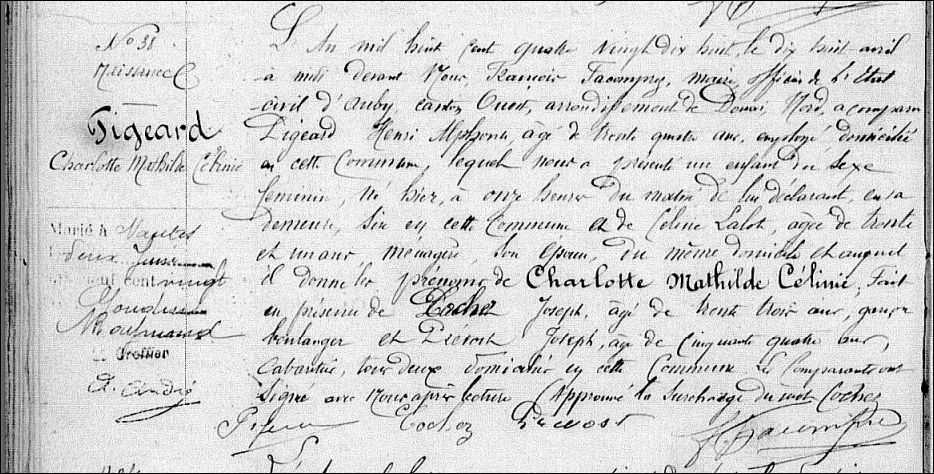 N° 38
Naissance
Pigeard
Charlotte Mathilde Célinie
Marié à Nantes
deux Juin
neuf cent vingt
Le Greffier
L'An mil huit cent quatre vingt dix huit, le dix huit avril
à midi devant Nous, François Facompré, maire, officier de l'Etat
civil d'Auby, canton Ouest, arrondissement de Douai, Nord, a comparu
Pigeard Henri Alphonse âgé de trente quatre ans, employé, domicilié
en cette Commune, lequel nous a présenté un enfant du sexe
féminin, né hier, à onze heures du matin de lui déclarant, en sa
demeure, sise en cette Commune et de Céline Lalot, agée de trente
et un ans, ménagère, son épouse, du même domicile et auquel
il donne les prénoms de Charlotte Mathilde Célinie, Fait
en présence de Cocher Joseph, âgé de trente trois ans, garçon
boulanger et Prévost Joseph, âgé de cinquante quatre ans,
Cabaretier, tous deux domiciliés en cette Commune. Les Comparants ont
Signé avec Nous après lecture. (Approuvé la Surcharge du mot Cocher
Pigeard Cocher Prevost